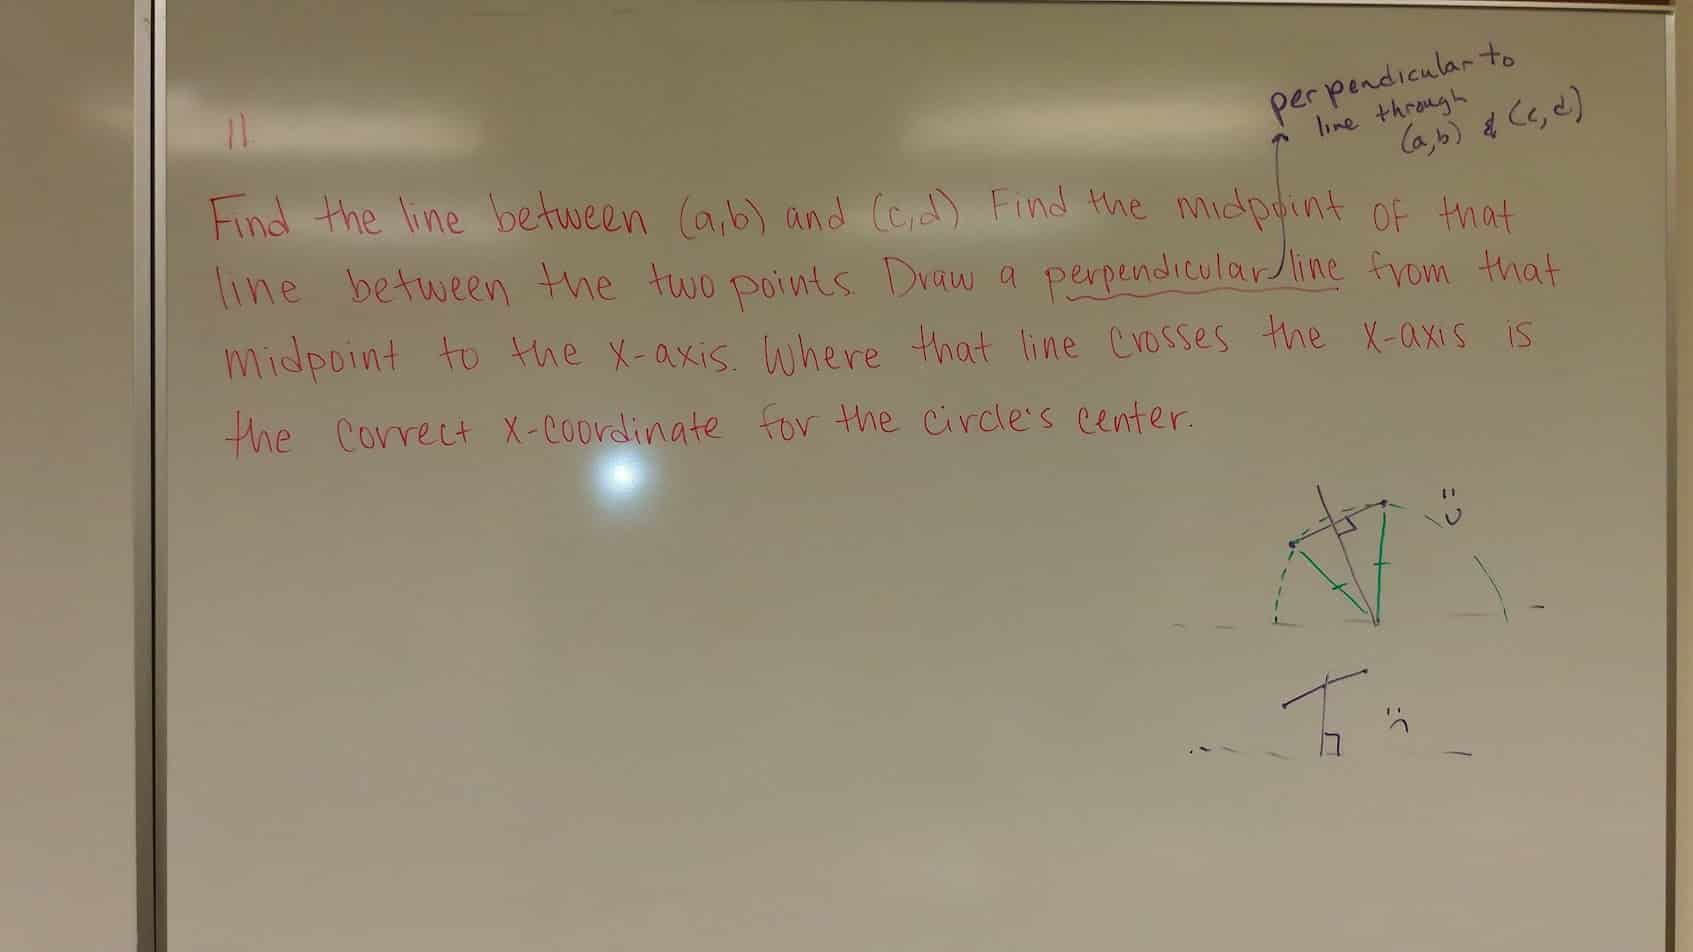 perpendicular to
line through
(a,b) & (c,d)
11.
Find the line between (a,b) and (c,d) Find the midpoint of that
line between the two points. Draw a perpendicular line from that
midpoint to the x-axis. Where that line crosses the x-axis is
the correct x-coordinate for the circle's center.